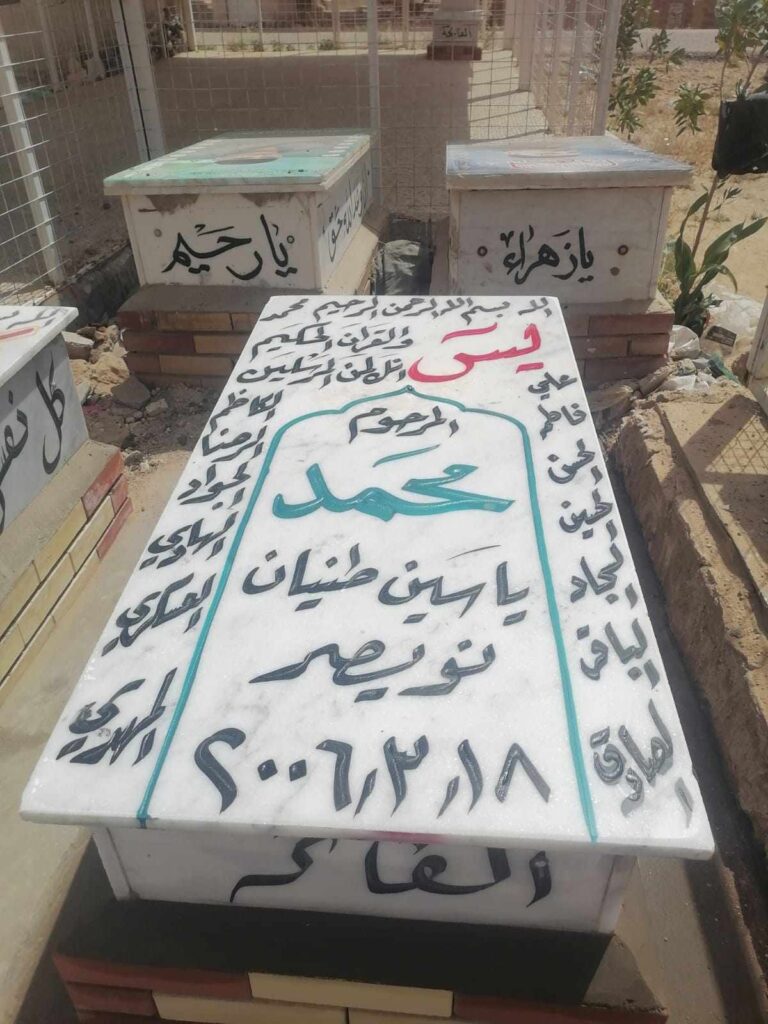 الفاتحة
يا رحيم
يا زهراء
بسم الله الرحمن الرحيم
يس
والقرآن الحكيم
انك لمن المرسلين
محمد
علي
فاطمة
الحسن
الحسين
السجاد
الباقر
الصادق
الكاظم
الرضا
الجواد
الهادي
العسكري
المهدي
المرحوم
محمد
ياسين طنيان
نويصر
٢٠٠٦/٣/١٨
الفاتحة
كل نفس